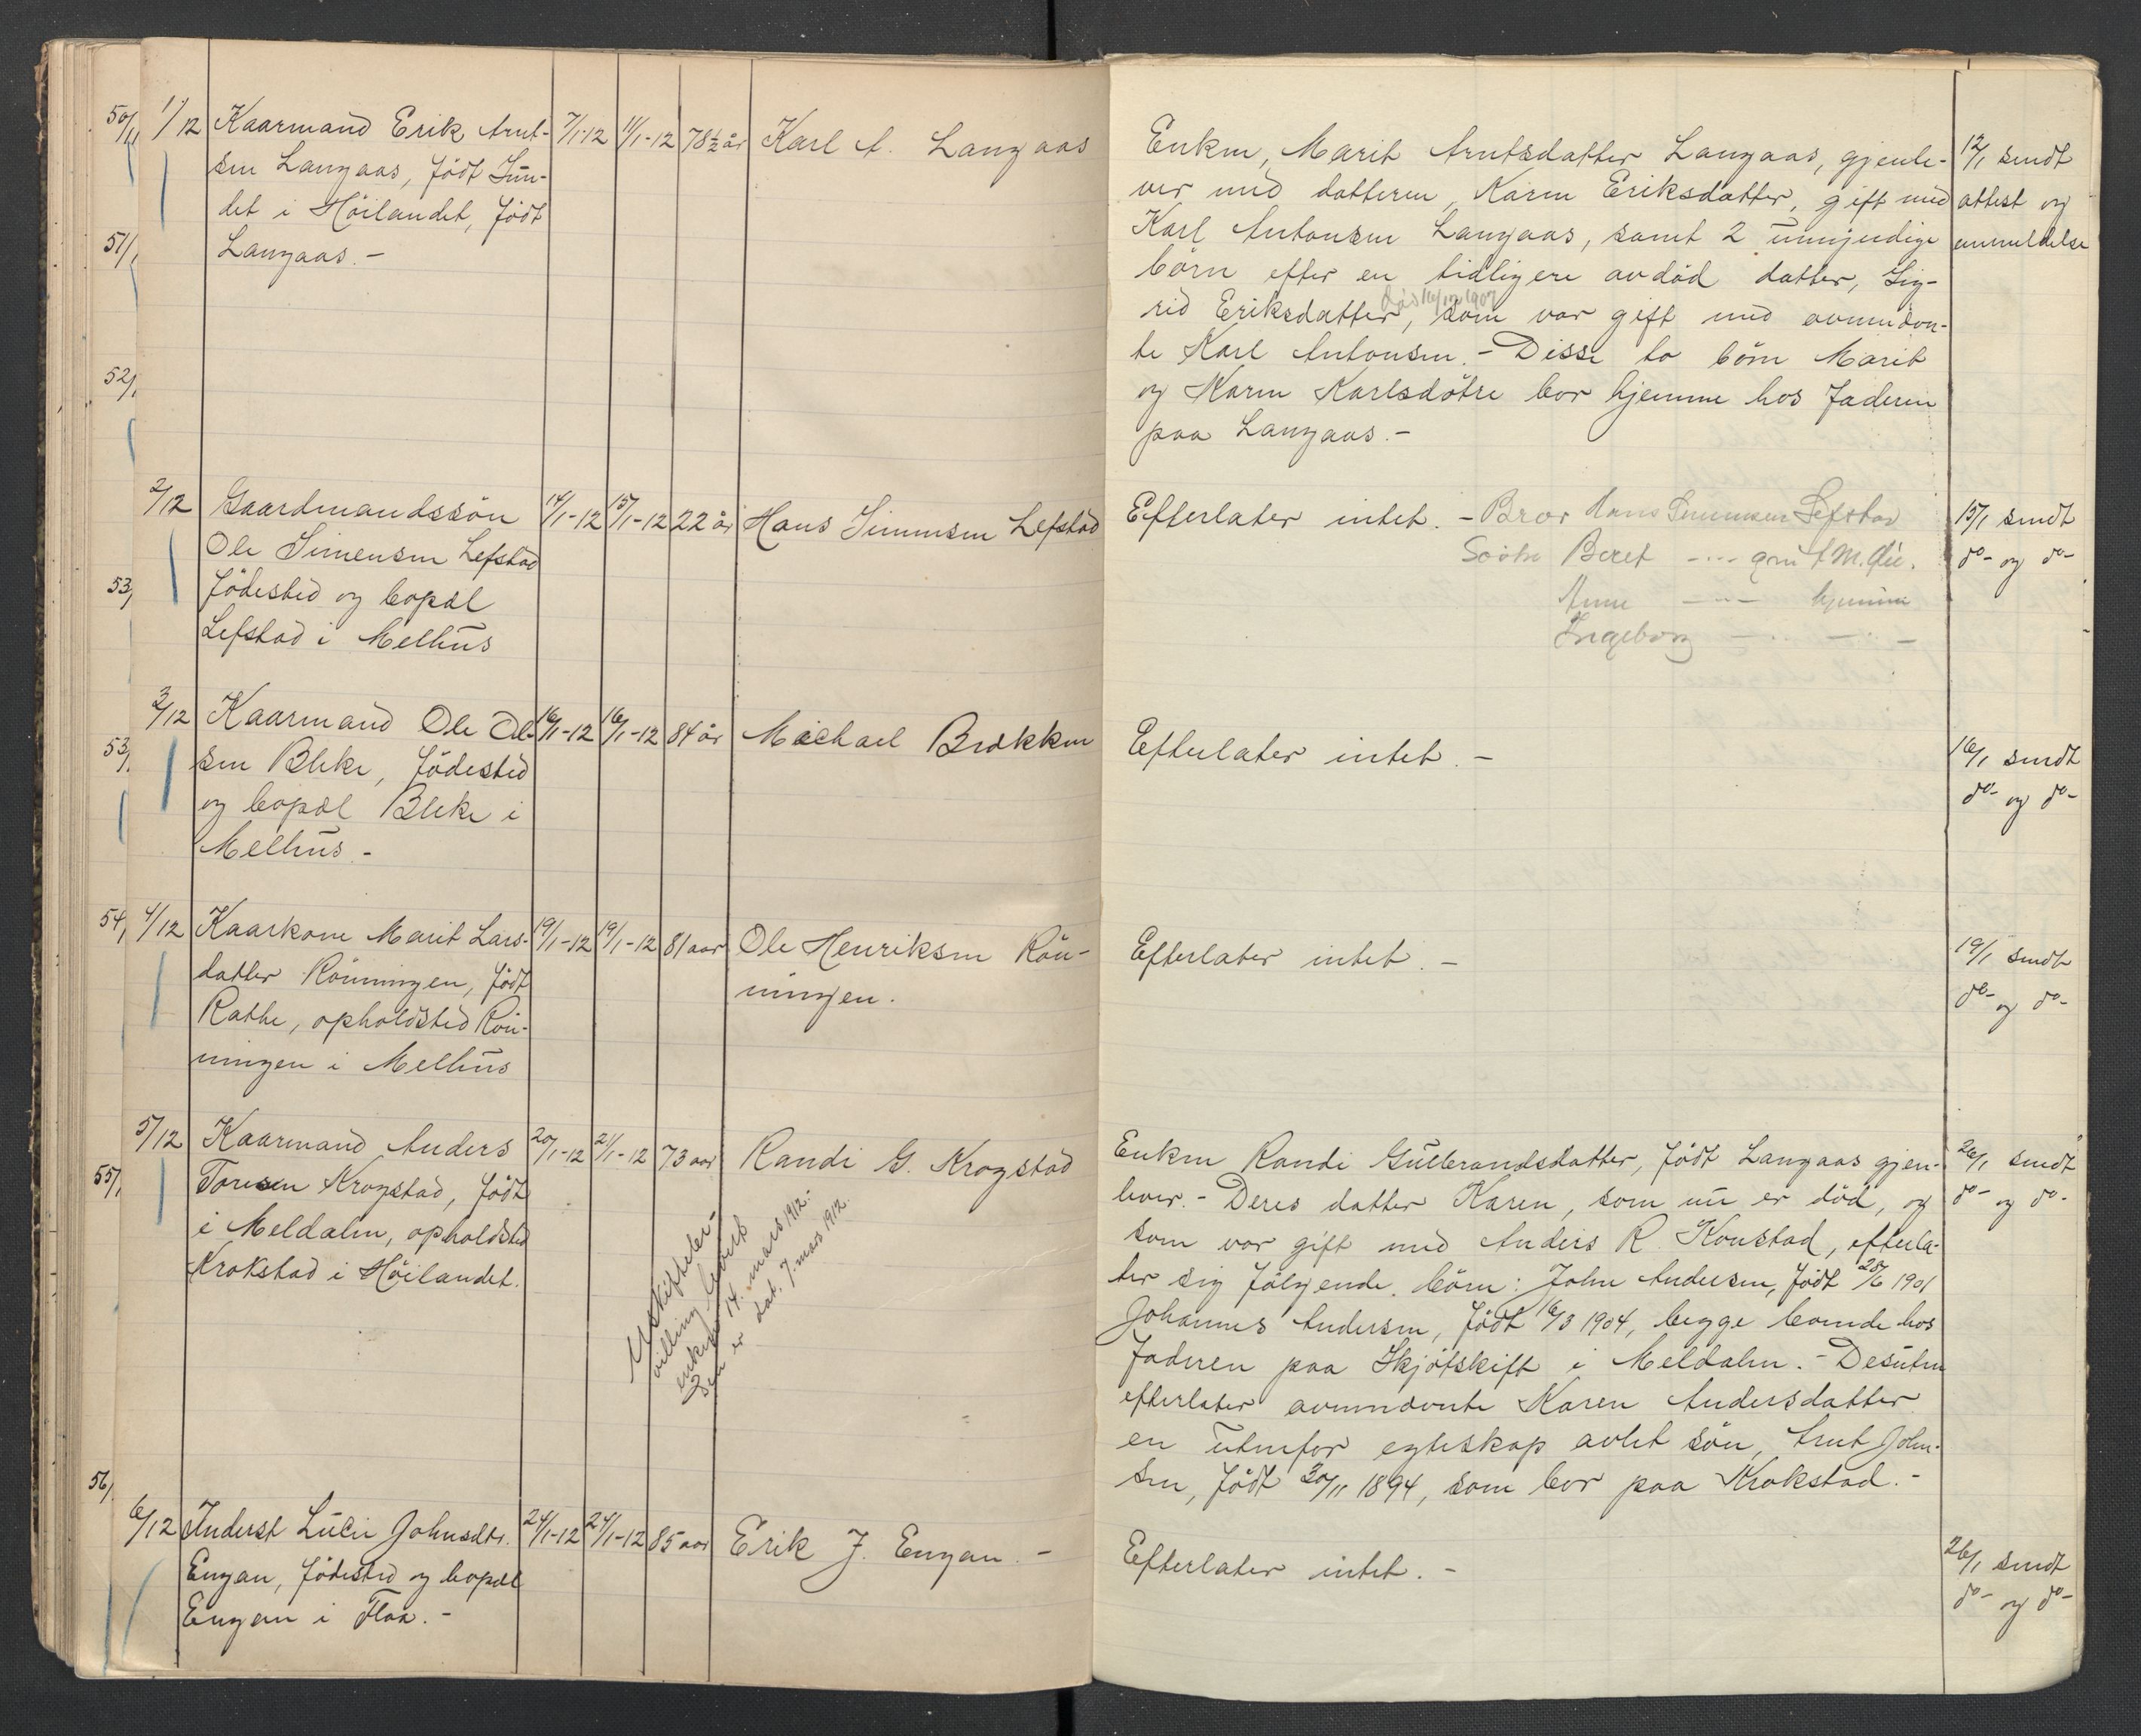 50/11
51/
52/
53/
53/
54/
55/
56/
1/12 Kaarmand Erik Arnt- 7/1-12 11/1-12 78½ år Karl A. Langaas
sen Langaas, født Sun-
det i Höilandet, födt
Langaas. -
Enken, Marit Arntsdatter Langaas, gjenle-
ver med datteren, Karen Eriksdatter, gift med
Karl Antonsen Langaas, samt 2 umyndige
börn efter en tidligere avdöd datter, Sig-
död 16/12 1907
rid Eriksdatter, som var gift med ovennævn-
te Karl Antonsen. - Disse to börn Marit
og Karen Karlsdötre bor hjemme hos faderen
paa Langaas. -
12/1 sendt
attest og
anmeldelse
2/12 Gaardmandssön 14/1-12 15/1-12 22 år Hans Simensen Lefstad
Ole Simensen Lefstad
födested og bopæl
Lefstad i Melhus
Efterlater intet. - Bror Hans Simensen Lefstad
Beret
Anne - - - hjemme
Ingeborg - - -
15/1 sendt
do- og do-
3/12 Kaarmand Ole Ol- 16/1-12 16/1-12 84 år Michael Brækken
sen Bleke, födested
og bopæl Bleke i
Melhus -
Efterlater intet. -
16/1 sendt
do- og do-
4/12 Kaarkone Marit Lars- 19/1-12 19/1-12 81 aar Ole Henriksen Rön-
datter Rönningen, födt ningen.
Rathe, opholdsted Rön-
ningen i Melhus
Efterlater intet. -
19/1 sendt
do- og do-
5/12 Kaarmand Anders 20/1-12 21/1-12 73 aar Randi G. Krogstad
Toresen Krogstad, födt
i Meldalen, opholdsted
Krokstad i Höilandet.
Uskiftebe-
villing levert
enken 14. mars 1912. -
Den er dat. 7. mars 1912.
Enken Randi Gulbrandsdatter, födt Langaas gjen-
lever. - Deres datter Karen, som nu er död, og
som var gift med Anders R. Konstad, efterla-
ter sig fölgende börn: John Andersen, födt 25/6 1901
Johannes Andersen, födt 16/3 1904, begge boende hos
faderen paa Skjötskift i Meldalen. - Desuten
efterlater ovennævnte Karen Andersdatter
en utenfor egteskap avlet sön, Arnt John-
sen, födt 30/11 1894, som bor paa Krokstad. -
26/1 sendt
do- og do-
6/12 Inderst Luci Johnsdtr. 24/1-12 24/1-12 85 aar Erik J. Engan. -
Engan, födested og bopæl
Engan i Flaa. -
Efterlater intet. -
26/1 sendt
do- og do-